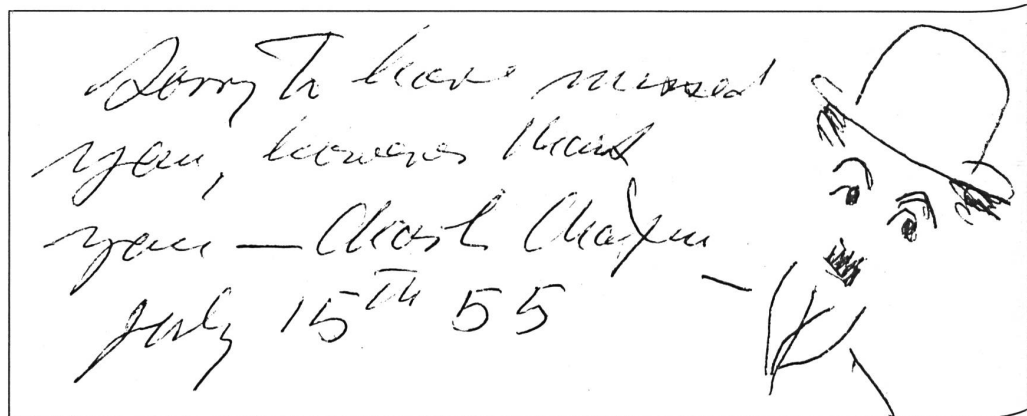 Sorry To have missed
you, however thank
you — Charlie Chaplin
July 15Th 55